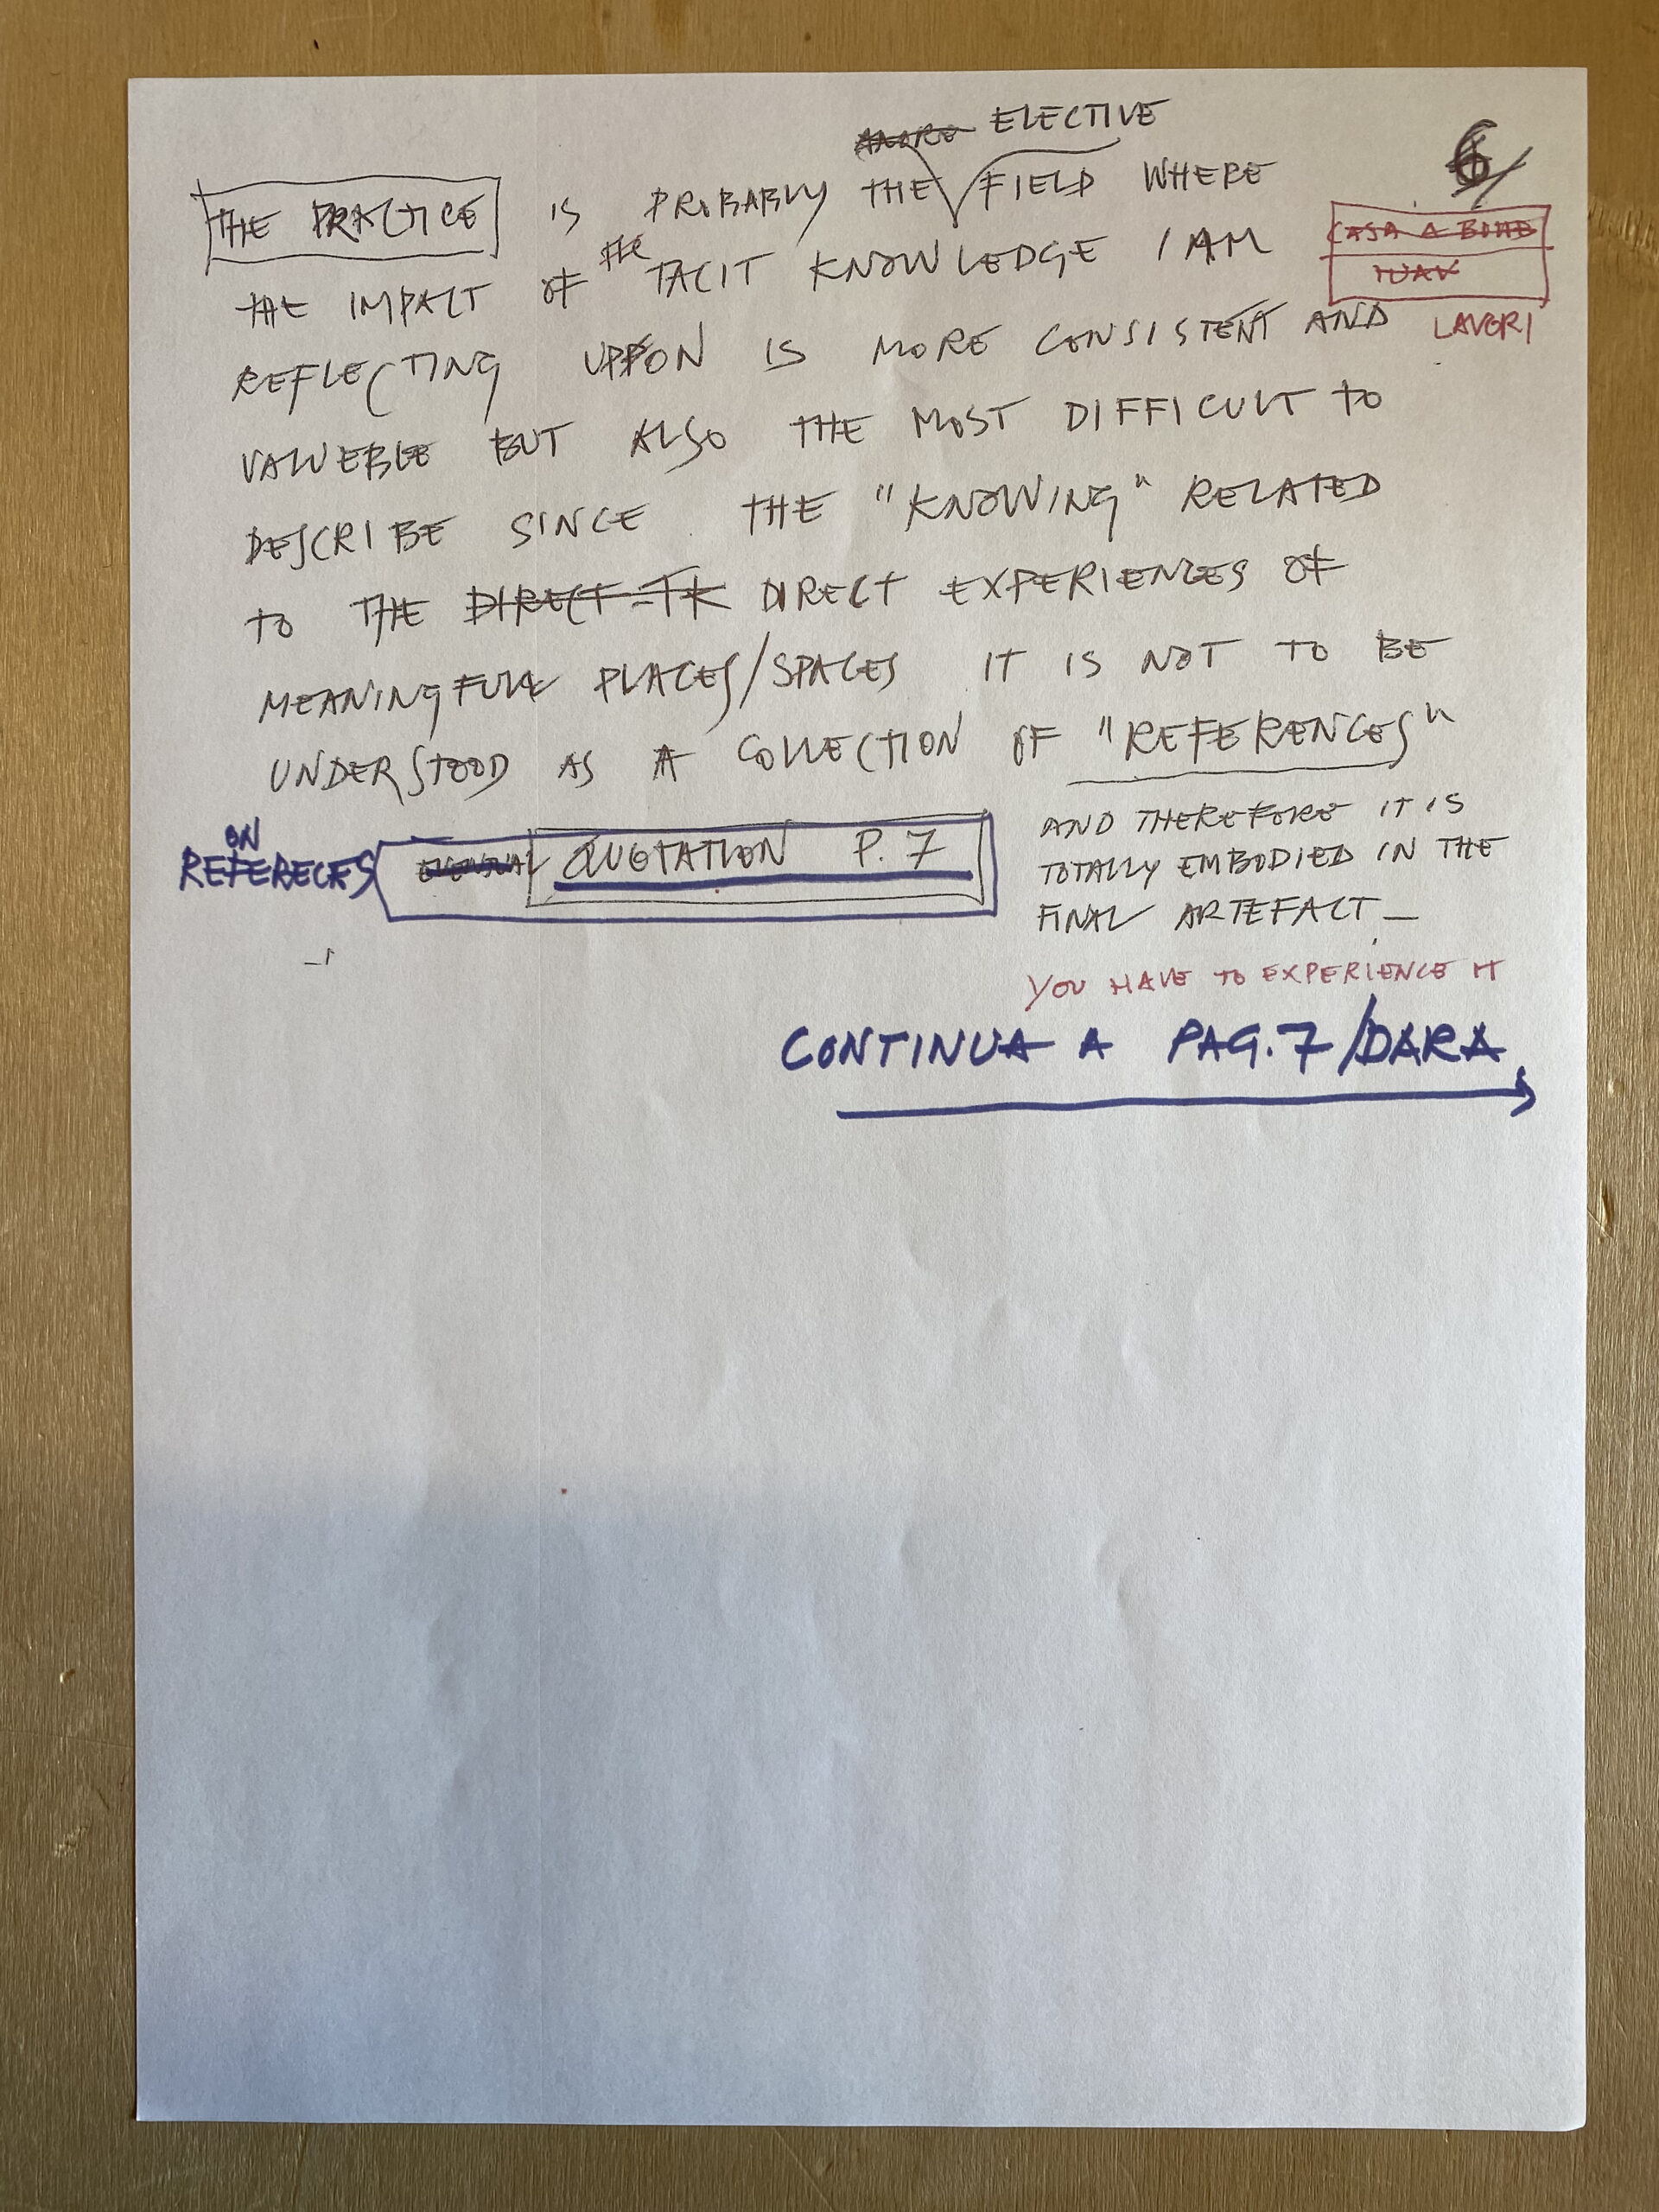 ELECTIVE
6/
THE PRACTICE IS PROBABLY THE FIELD WHERE
CASA A
IUAV
LAVORI
THE IMPACT OF THE TACIT KNOWLEDGE I AM
REFLECTING UPPON IS MORE CONSISTENT AND
VALUEBLE BUT ALSO THE MOST DIFFICULT TO
DESCRIBE SINCE THE "KNOWING" RELATED
TO THE DIRECT-TK DIRECT EXPERIENCES OF
MEANINGFULL PLACES/SPACES IT IS NOT TO BE
UNDERSTOOD AS A COLLECTION OF "REFERENCES"
AND THEREFORE IT IS
TOTALLY EMBODIED IN THE
FINAL ARTEFACT_
ON
REFERECES
QUOTATION P. 7
YOU HAVE TO EXPERIENCE IT
CONTINUA A PAG. 7/DARA